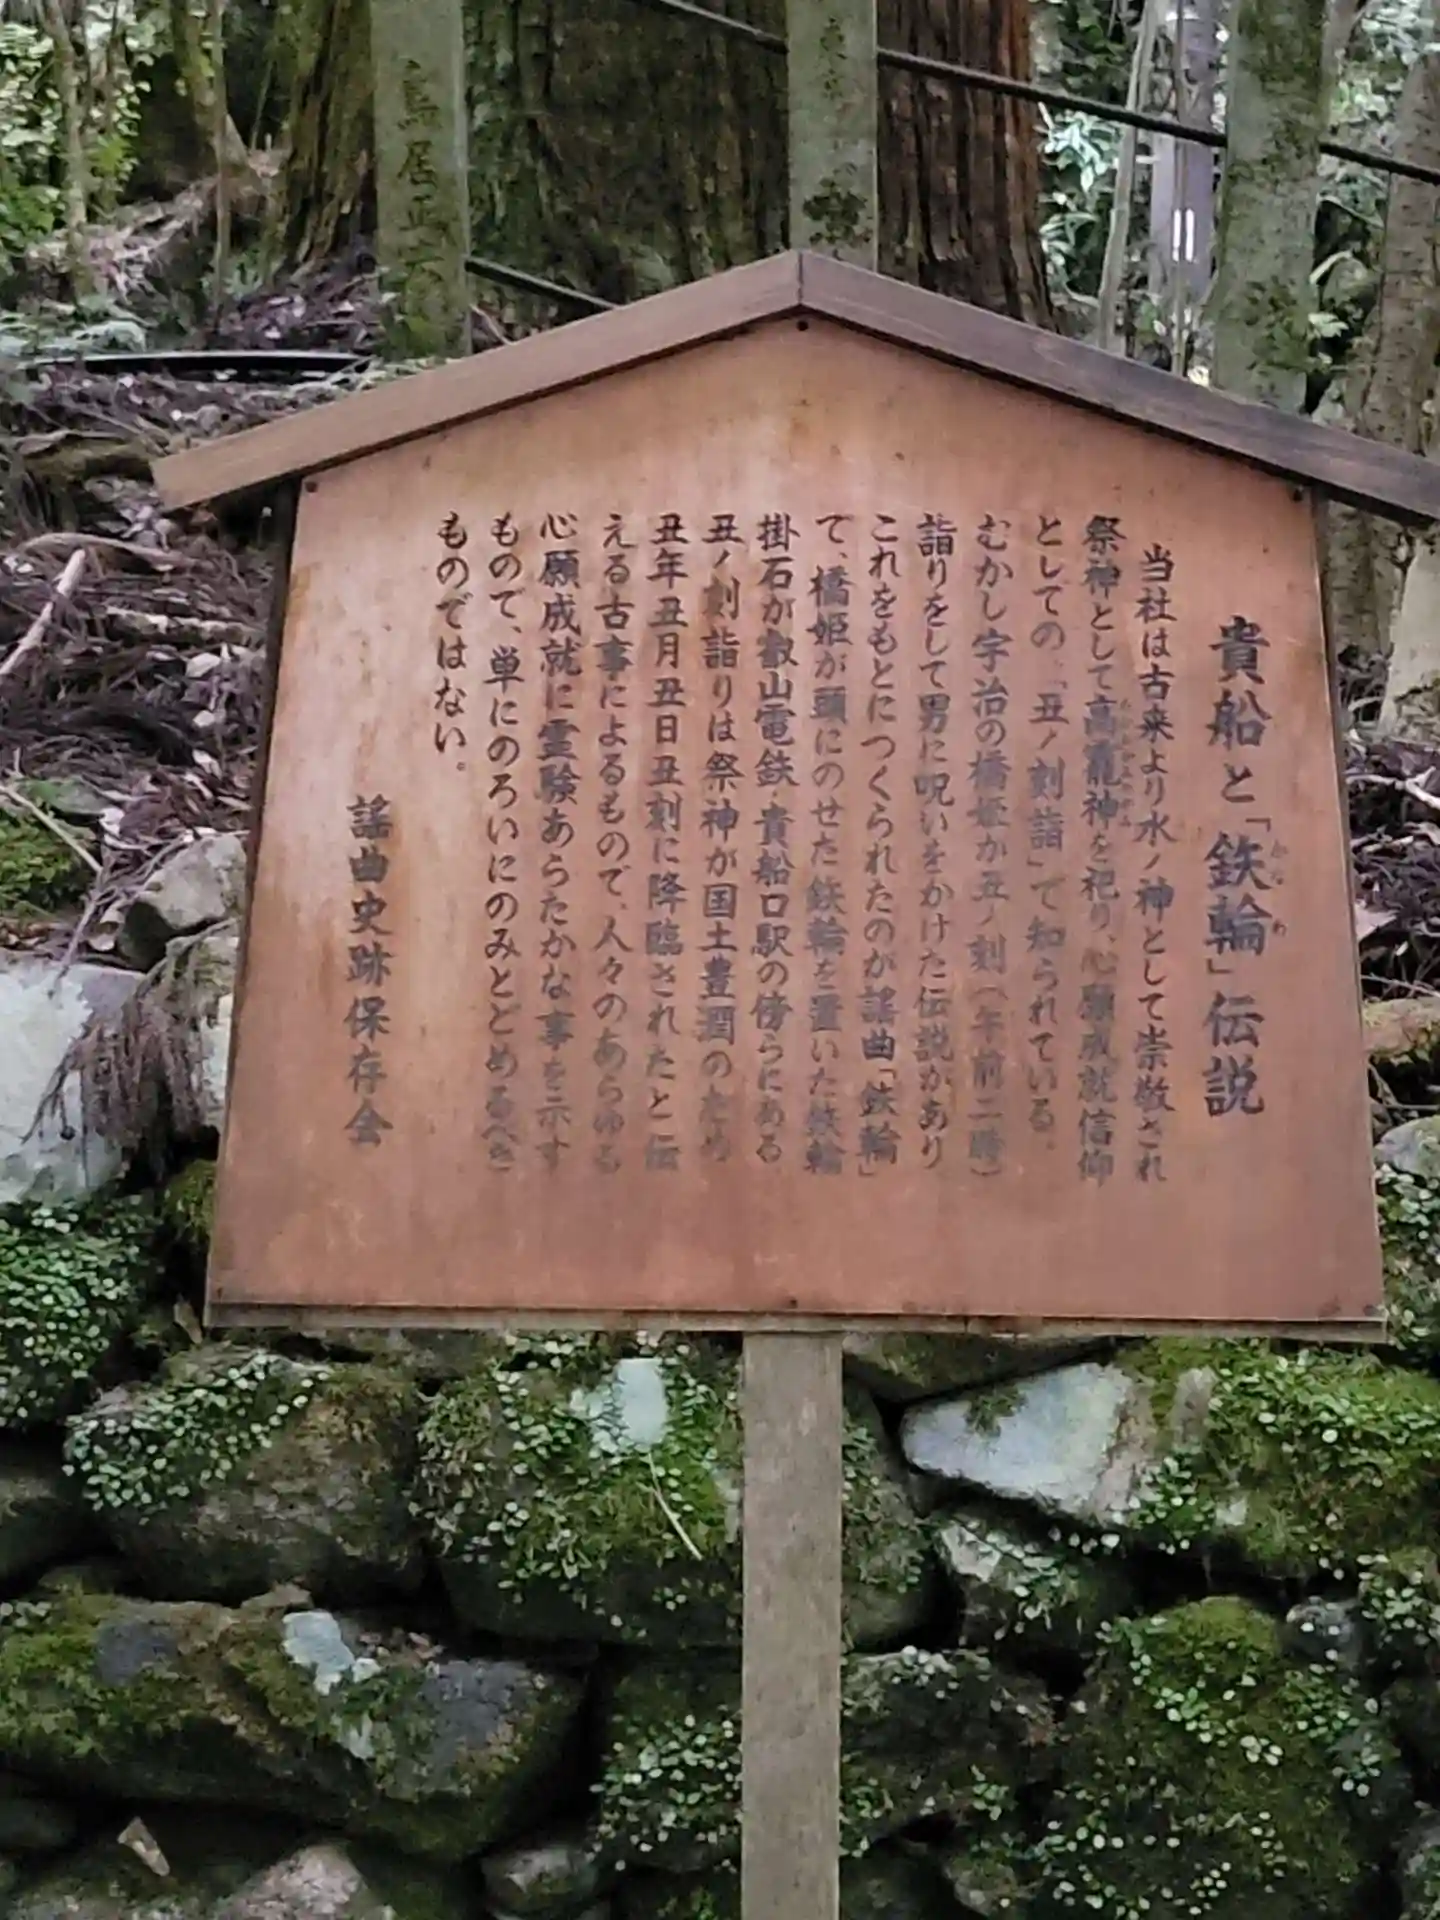 貴船と「鉄輪」伝説
当社は古来より水ノ神として崇敬され
祭神として高龗神を祀り、心願成就信仰
としての「丑ノ刻詣」で知られている。
むかし宇治の橋姫が丑ノ刻（午前二時）
詣りをして男に呪いをかけた伝説があり
これをもとにつくられたのが謡曲「鉄輪」
て、橋姫が頭にのせた鉄輪を置いた鉄輪
掛石が叡山電鉄・貴船口駅の傍らにある
丑ノ刻詣りは祭神が国土豊潤のため
丑年丑月丑日丑刻に降臨されたと伝
える古事によるもので、人々のあらゆる
心願成就に霊験あらたかな事を示す
もので、単にのろいにのみとどめるべき
ものではない。
謡曲史跡保存会